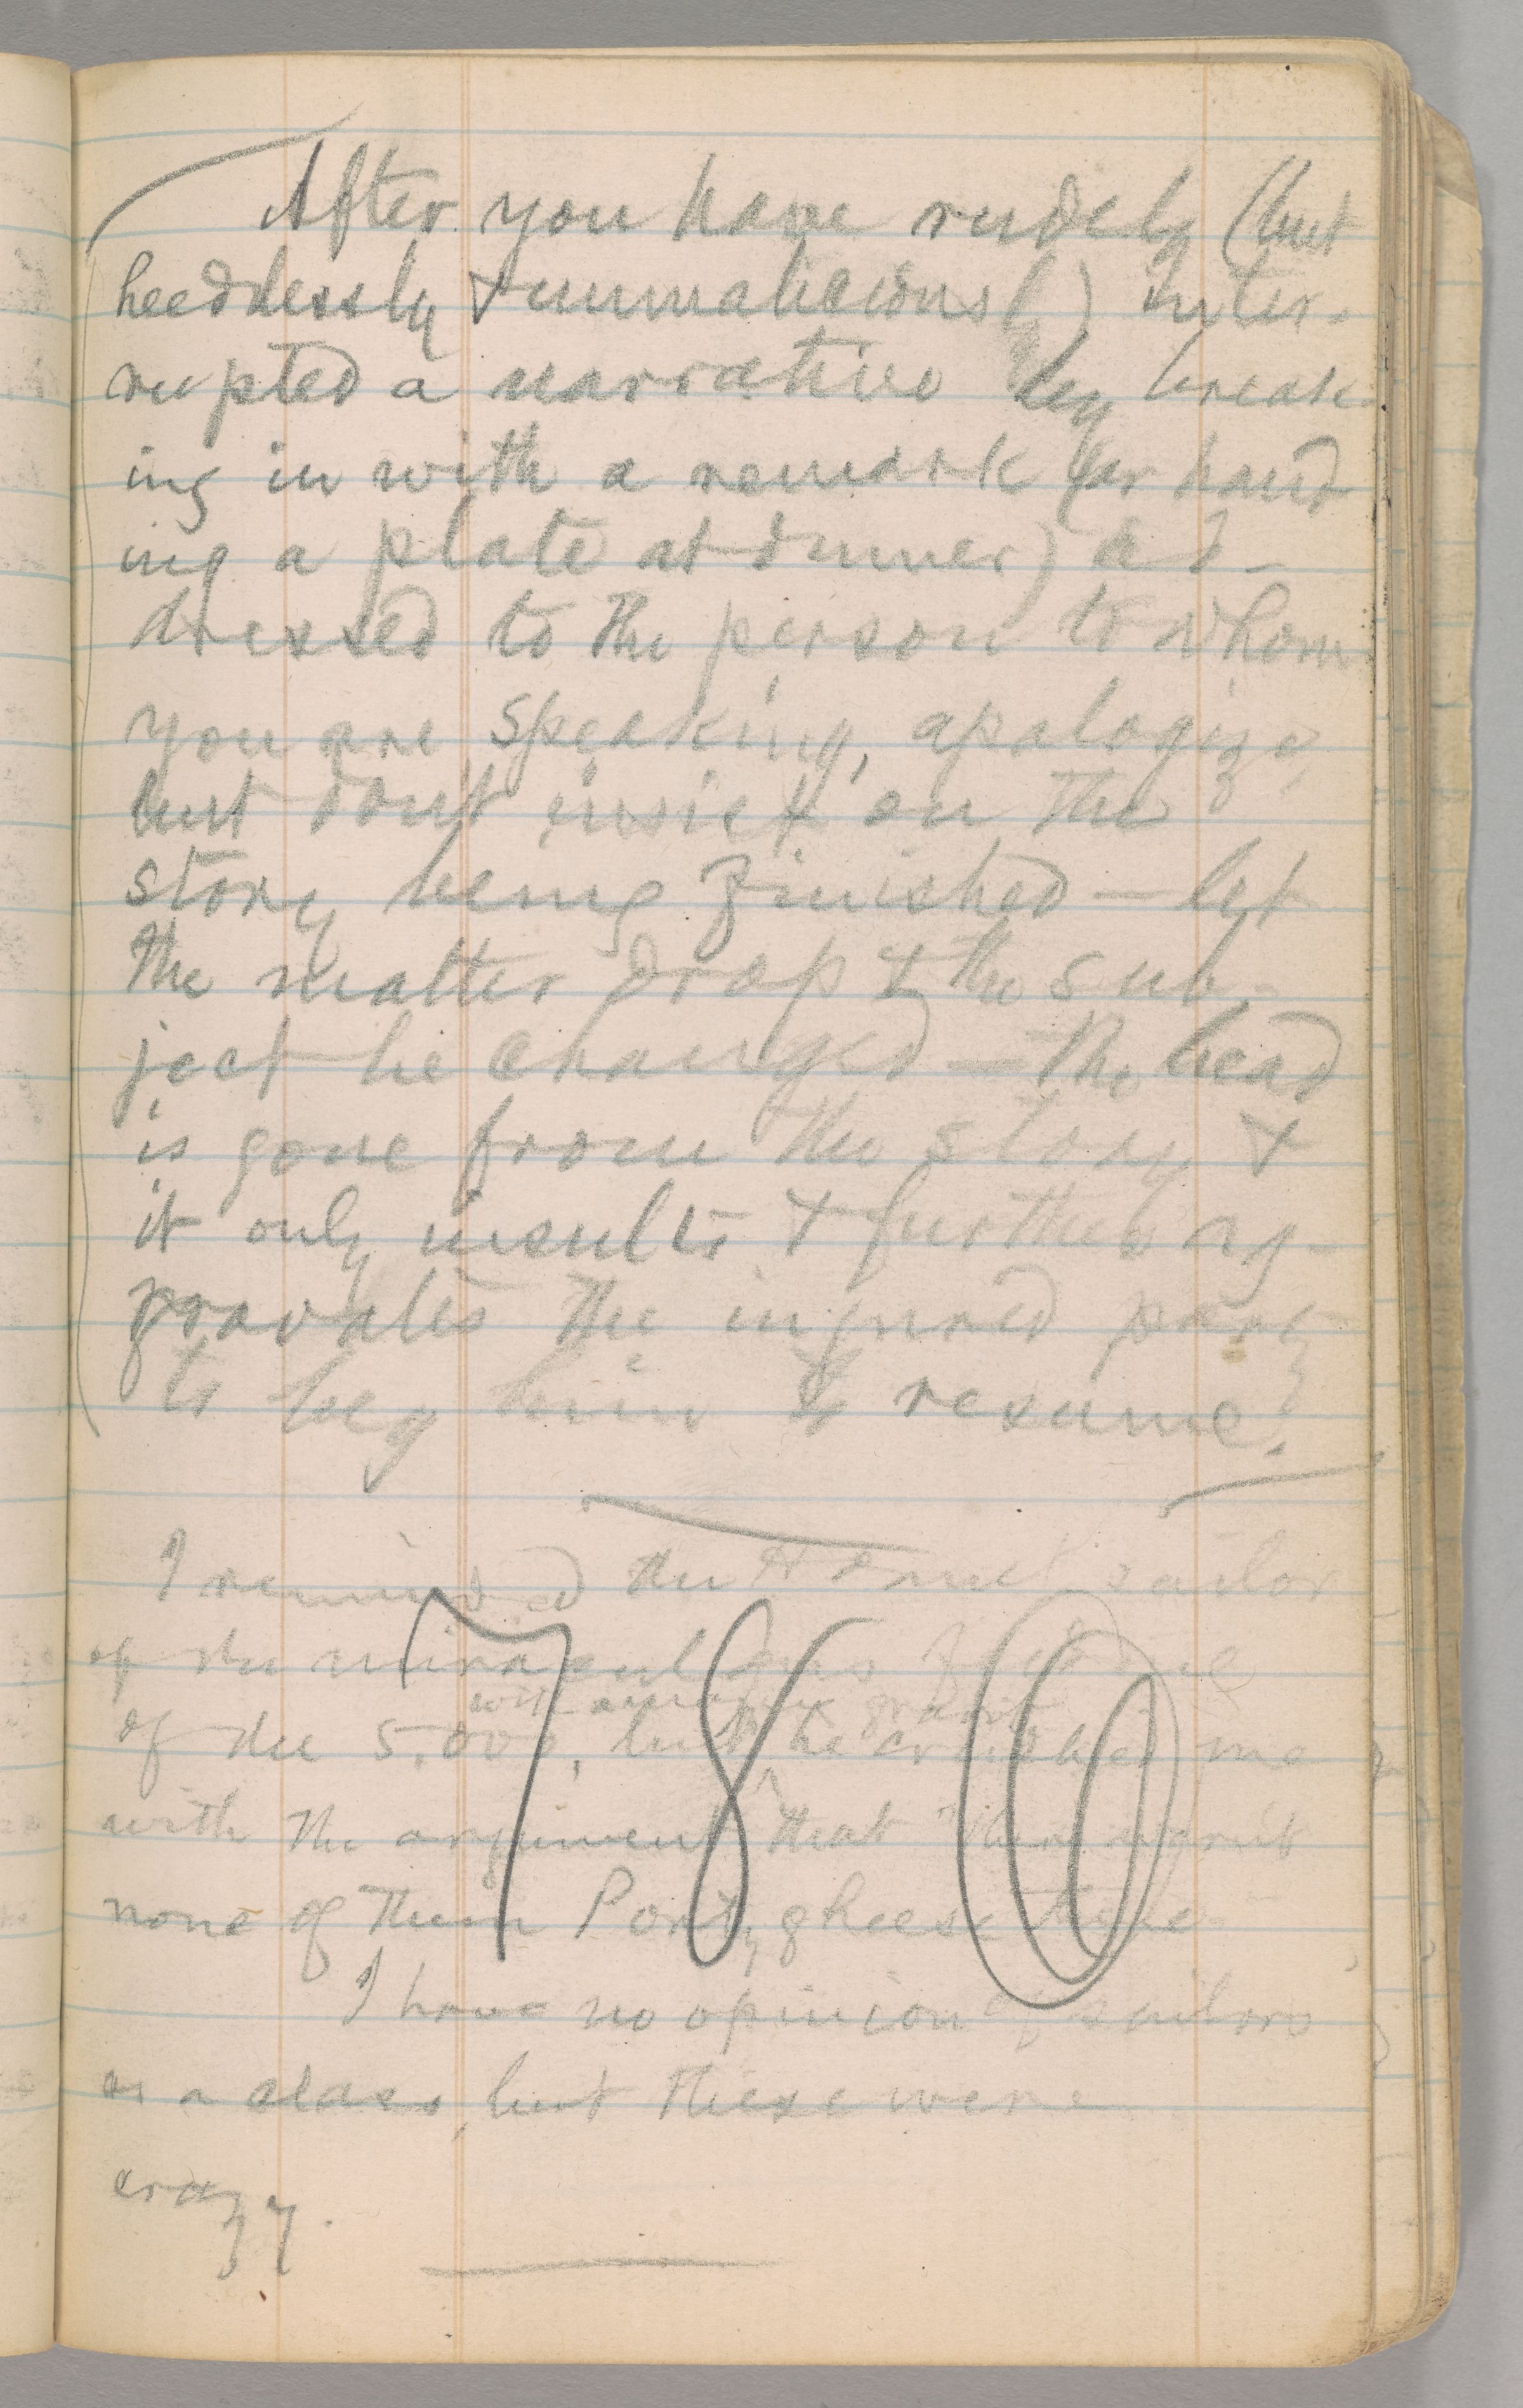 After you have rudely (but
heedlessly & unmaliciously) inter-
rupted a narrative by break-
ing in with a remark (or hand
ing a plate at dinner) ad-
dressed to the person to whom
you are speaking, apologize,
but dont insist on the
story being finished — let
the matter drop & the sub-
ject be changed — the head
is gone from the story &
it only insults & further ag-
gravates the injured party
to beg him to resume.
I reminded the Hornet sailor
of the miraculous
of the 5,000, but he crushed me
with the argument that there warn't
none of them Portyghees there
I have no opinion of sailors
as a class, but these were
crazy.
780